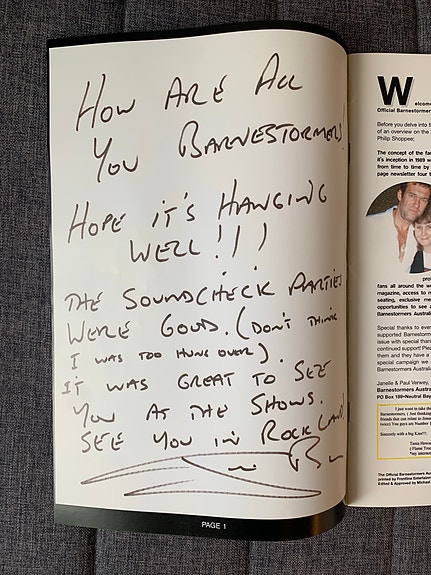 How ARE ALL
You BARNESTORMERS
HOPE IT'S HANGING
WELL!!!
THE SOUNDCHECK PARTIES
WERE GOOD. (DON'T THINK
I WAS TOO HUNG OVER).
IT WAS GREAT TO SEE
YOU AT THE SHOWS.
SEE YOU IN ROCKLAND
PAGE 1
Welcome
Official Barnestormer
Before you delve into t
of an overview on the
Philip Shoppee;
The concept of the fa
it's inception in 1989 w
from time to time by
page newsletter four t
fans all around the w
magazine, access to
seating, exclusive me
opportunities to see a
Barnestormers Austral
Special thanks to ever
supported Barnestorm
issue with special than
continued support! Plea
them and they have a
special campaign we
Barnestormers Australia
Janelle & Paul Verwey,
Barnestormers Austra
PO Box 189•Neutral Bay
I just want to take the
Barnestormers, ( Just thinking
that can relate to
twice) You guys are Number 1
Sincerely with a big Kiss!!!,
Tania
( Flame Tree
*my internet
The Official Barnestormers Aust
printed by Frontline Entertainm
Edited & Approved by Michael